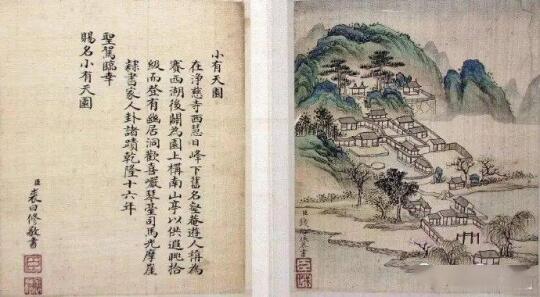 小有天園
在淨慈寺西慧日峰下舊名壑菴遊人稱為
賽西湖後闢為園上構南山亭以供遊眺拾
級而登有幽居洞歡喜巖琴臺司馬光摩崖
隸書家人卦諸蹟乾隆十六年
聖駕臨幸
賜名小有天園
臣裘曰修敬書